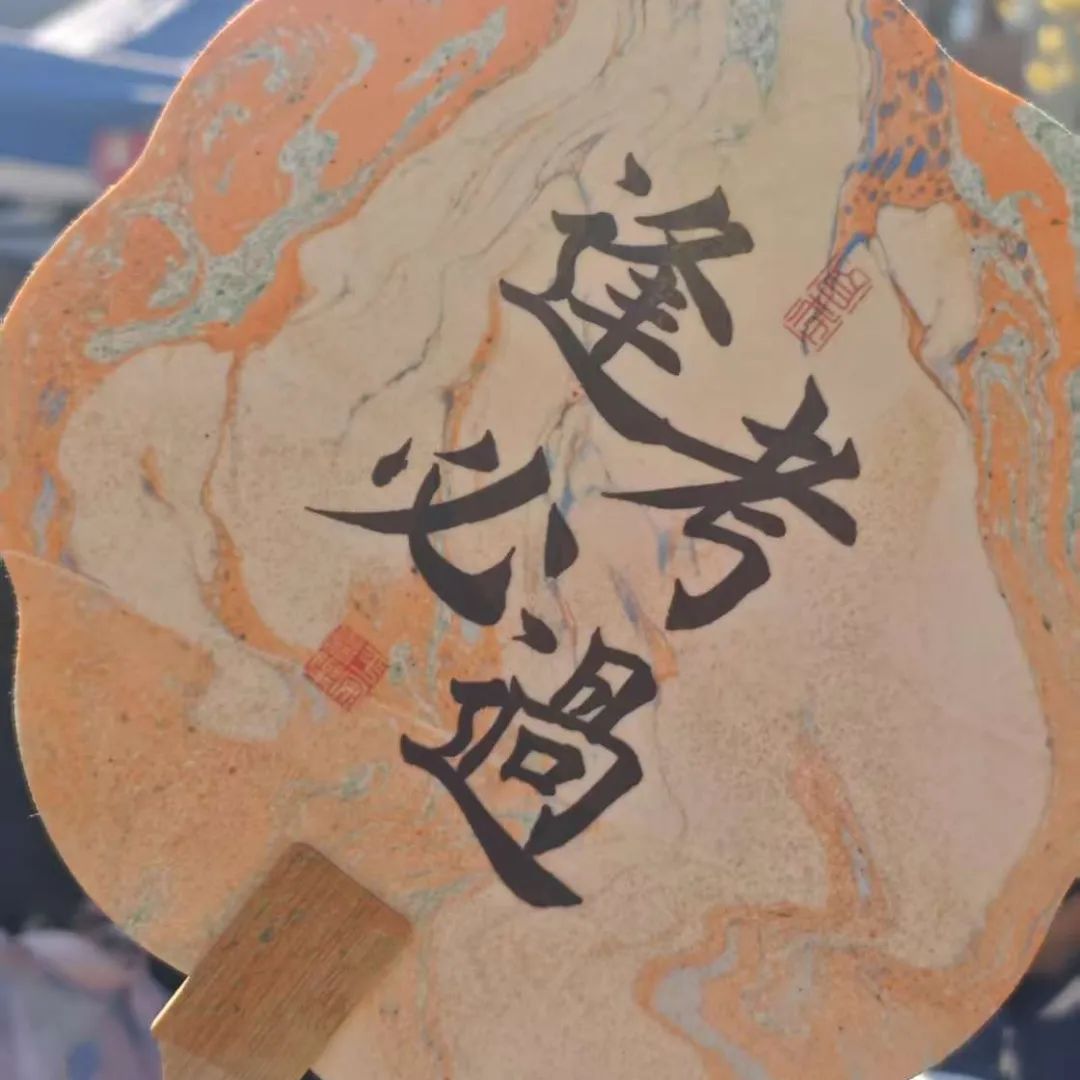 逢
考
必
過